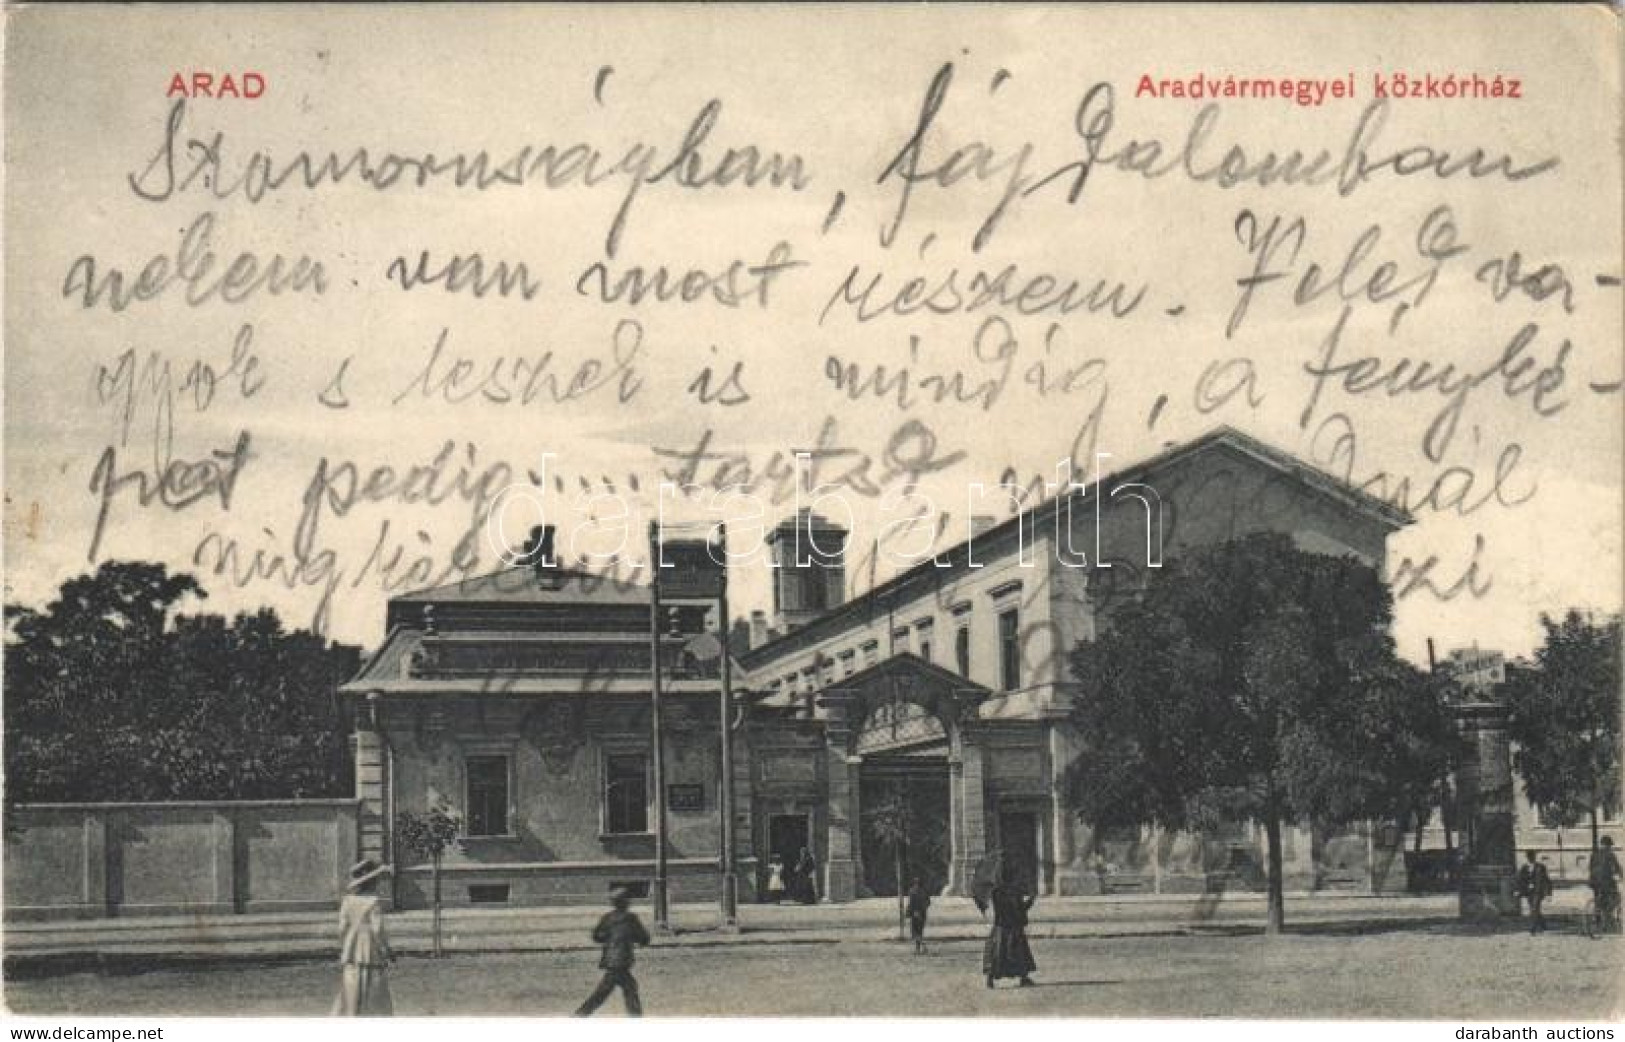 ARAD
Aradvármegyei közkórház
Szomorúságban, fájdalomban
nekem van most részem. Veled va-
gyok s leszek is mindig, a fényké-
pet pedig..... tartsd magadnál
darabanth
darabanth auctions